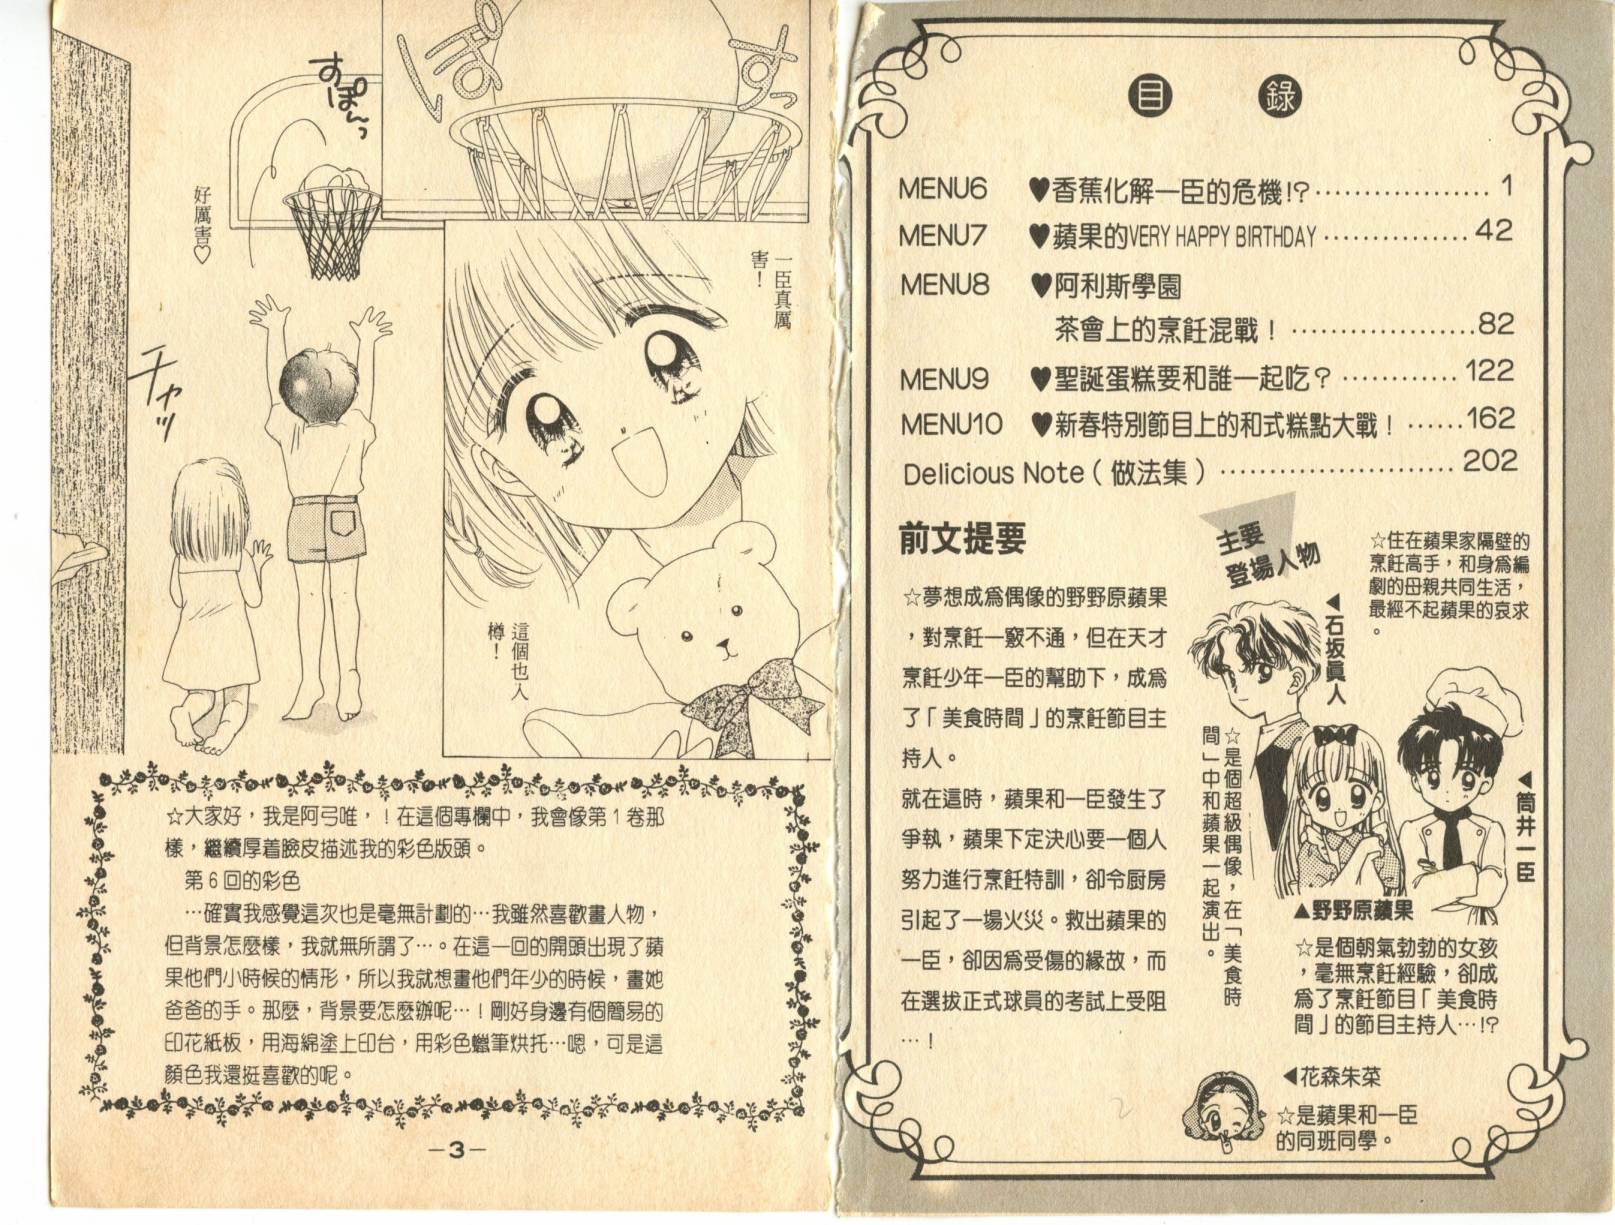 すぽんっ
ぱすっ
好厲害♡
一臣真厲
害！
チャッ
這個也入
樽！
☆大家好，我是阿弓唯，！在這個專欄中，我會像第1卷那
樣，繼續厚着臉皮描述我的彩色版頭。
第6回的彩色
…確實我感覺這次也是毫無計劃的…我雖然喜歡畫人物，
但背景怎麼樣，我就無所謂了…。在這一回的開頭出現了蘋
果他們小時候的情形，所以我就想畫他們年少的時候，畫她
爸爸的手。那麼，背景要怎麼辦呢…！剛好身邊有個簡易的
印花紙板，用海綿塗上印台，用彩色蠟筆烘托…嗯，可是這
顏色我還挺喜歡的呢。
－3－
目 錄
MENU6 ♥香蕉化解一臣的危機!?………………1
MENU7 ♥蘋果的VERY HAPPY BIRTHDAY……………42
MENU8 ♥阿利斯學園
茶會上的烹飪混戰！………………82
MENU9 ♥聖誕蛋糕要和誰一起吃？…………122
MENU10 ♥新春特別節目上的和式糕點大戰！……162
Delicious Note（做法集）……………………202
前文提要
☆夢想成為偶像的野野原蘋果
，對烹飪一竅不通，但在天才
烹飪少年一臣的幫助下，成為
了「美食時間」的烹飪節目主
持人。
就在這時，蘋果和一臣發生了
爭執，蘋果下定決心要一個人
努力進行烹飪特訓，卻令廚房
引起了一場火災。救出蘋果的
一臣，卻因為受傷的緣故，而
在選拔正式球員的考試上受阻
…！
主要
登場人物
☆住在蘋果家隔壁的
烹飪高手，和身為編
劇的母親共同生活，
最經不起蘋果的哀求
。
◀石坂眞人
☆是個超級偶像，在「美食時
間」中和蘋果一起演出。
◀筒井一臣
▲野野原蘋果
☆是個朝氣勃勃的女孩
，毫無烹飪經驗，卻成
為了烹飪節目「美食時
間」的節目主持人…!?
◀花森朱菜
☆是蘋果和一臣
的同班同學。
2